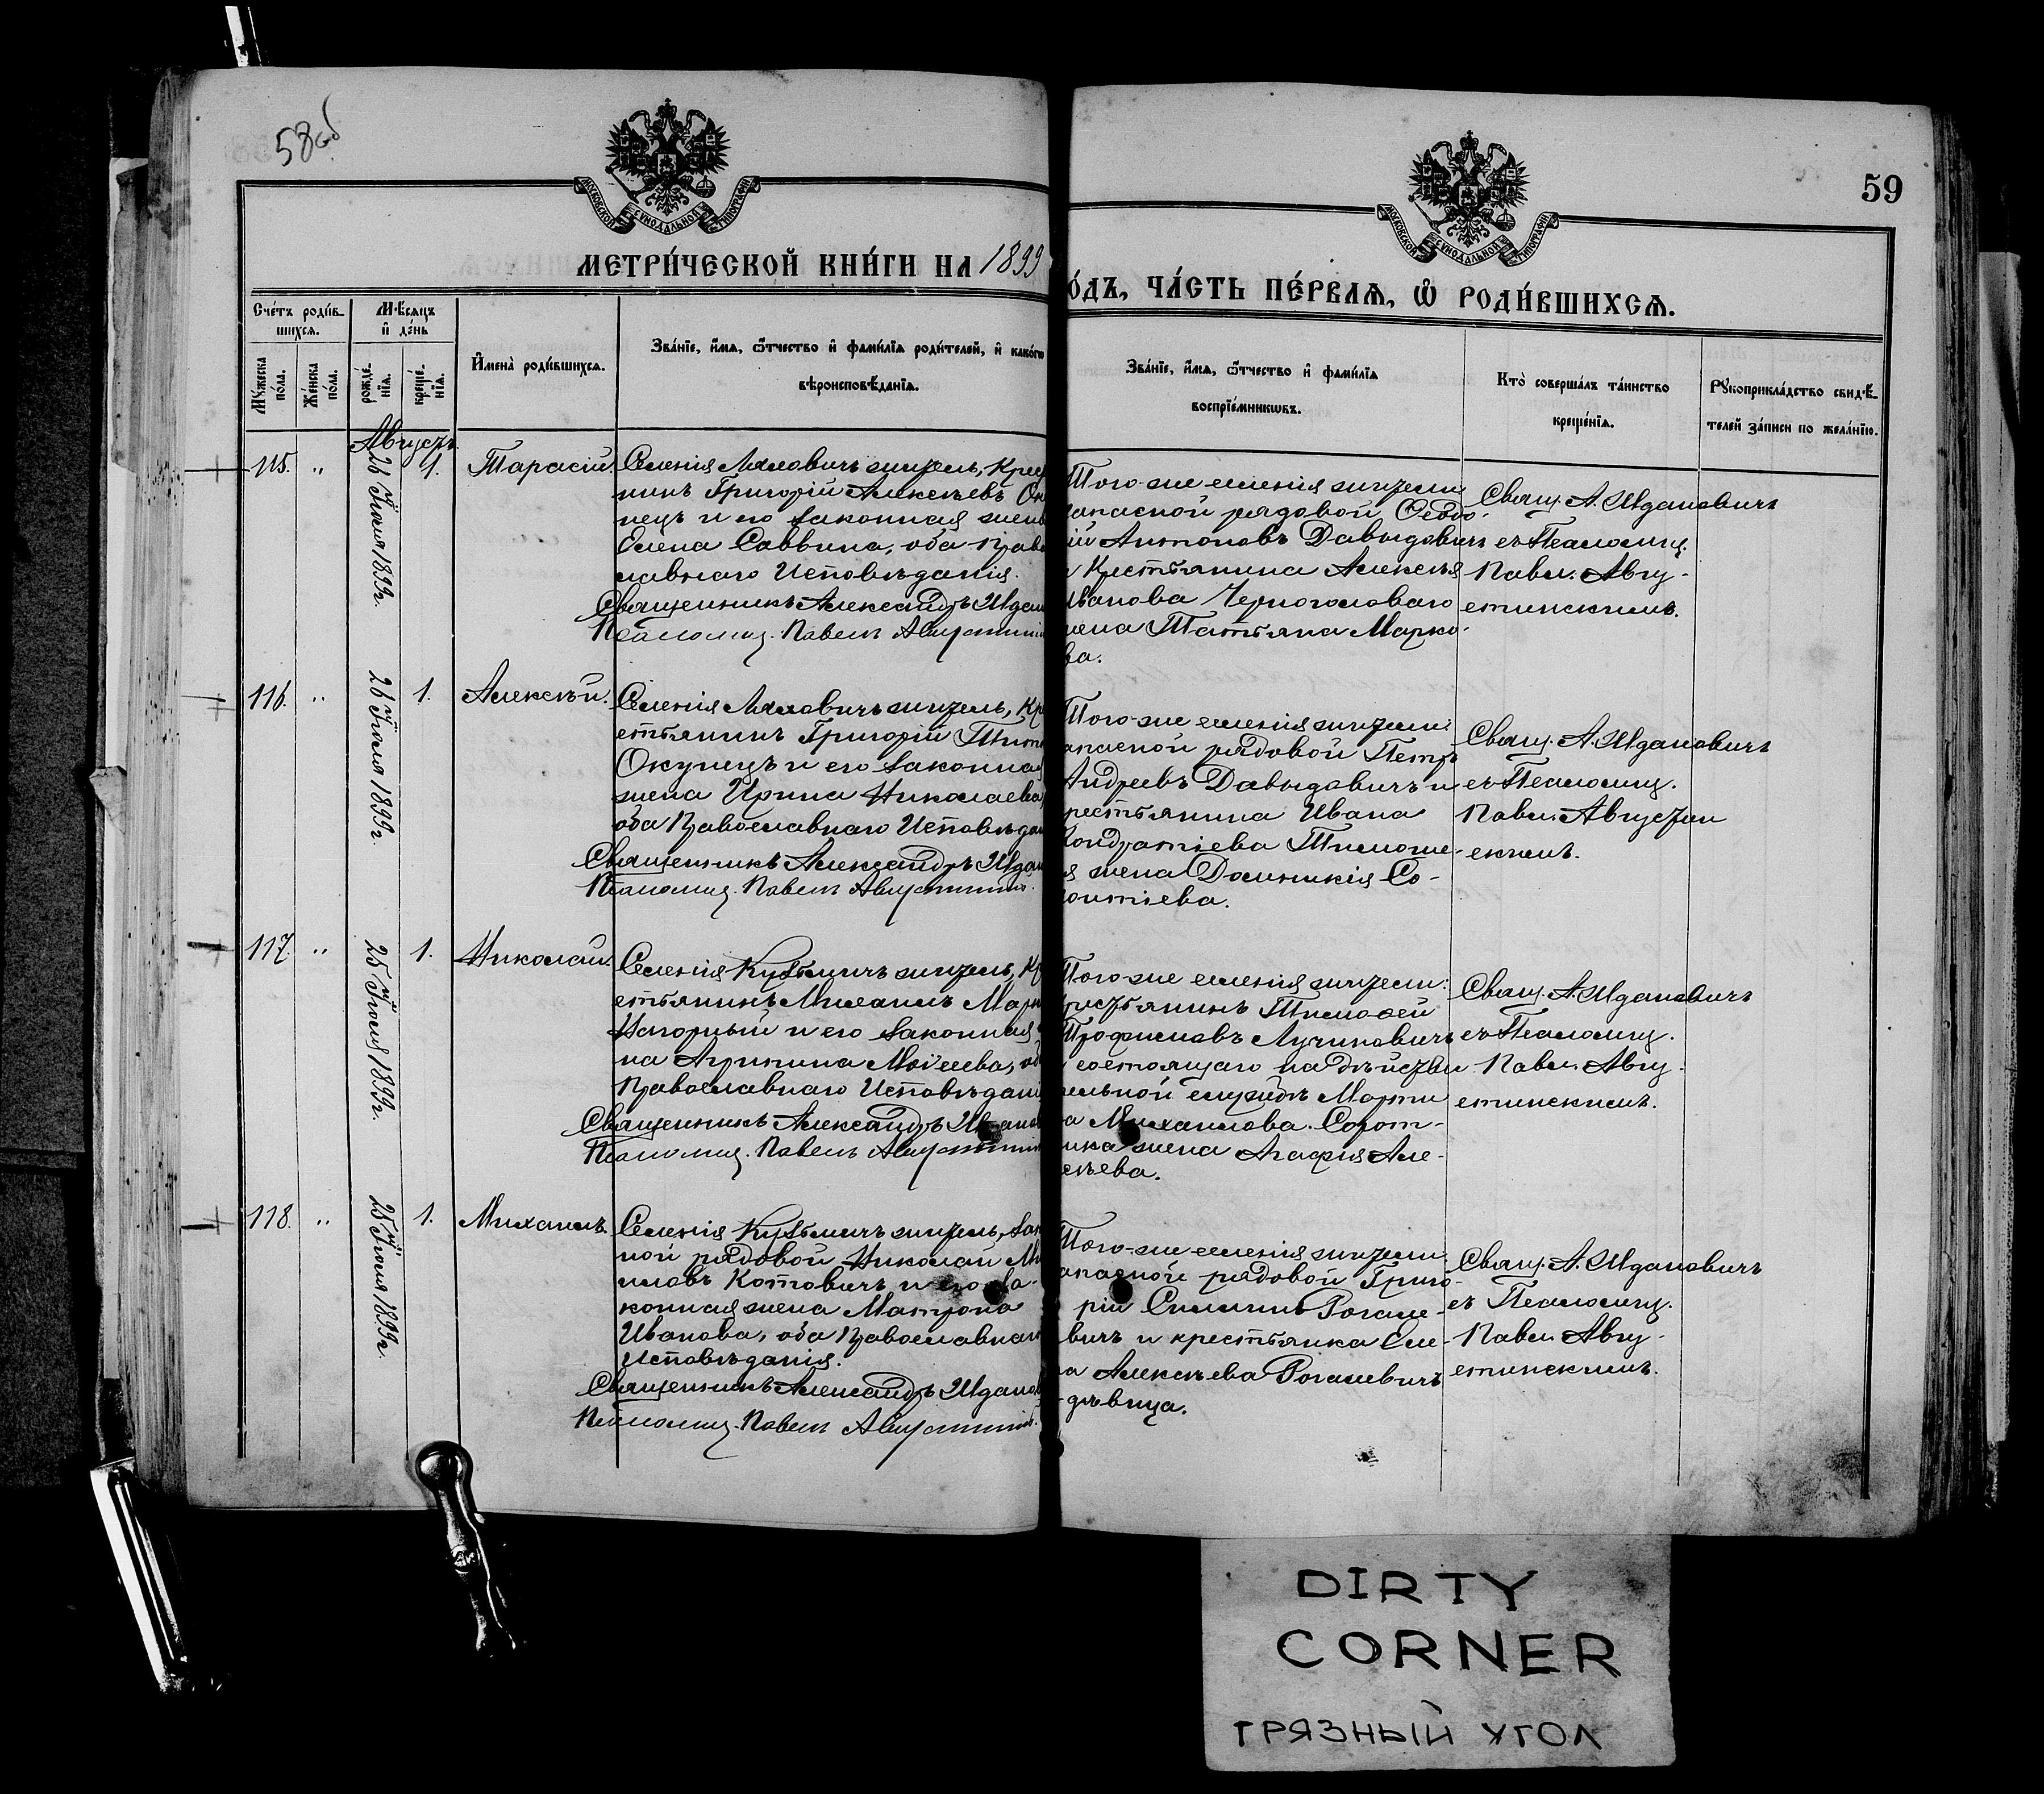 58об
59
МОСКОВСКОЙ СѴНОДАЛЬНОЙ ТИПОГРАФІИ
МОСКОВСКОЙ СѴНОДАЛЬНОЙ ТИПОГРАФІИ
МЕТРИ́ЧЕСКОЙ КНИ́ГИ НА 1899
О́ДЪ, ЧА́СТЬ ПЕ́РВАѦ, Ѽ РОДИ́ВШИХСѦ.
Сче́тъ роди́в-
шихсѧ.
Мꙋ́жеска
по́ла.
Же́нска
по́ла.
Мѣ́сѧцъ
и҆ де́нь
рожде́-
нїѧ.
креще́-
нїѧ.
И҆мена̀ роди́вшихсѧ.
Зва́нїе, и҆́мѧ, ѻ҆́тчество и҆ фами́лїѧ роди́телей, и҆ како́гѡ
вѣроисповѣ́данїѧ.
Зва́нїе, и҆́мѧ, ѻ҆́тчество и҆ фами́лїѧ
воспрїе́мникѡвъ.
Кто̀ соверша́лъ та́инство
креще́нїѧ.
Рꙋкоприкла́дство свидѣ́-
телей за́писи по жела́нїю.
Августъ
115. „ 26 Іюля 1899г. 1. Тарасій.
Селенія Ляховичъ житель, Крес
нинъ Григорій Алексѣевъ Ок
нецъ и его законная жен
Елена Саввина, оба Прав
лавнаго Исповѣданія.
Священникъ Александръ Ждан
Псаломщ. Павелъ Августин
Того-же селенія жители
запасной рядовой Ѳеодо-
ій Антоновъ Давыдовичъ
и Крестьянина Алексѣя
Иванова Черноголоваго
жена Татьяна Марко-
ва.
Свящ. А. Ждановичъ
съ Псаломщ.
Павл. Авгу-
стинскимъ.
116. „ 26 Іюля 1899г. 1. Алексѣй.
Селенія Ляховичъ житель, Кр
стьянинъ Григорій Тит
Окунецъ и его законная
жена Ирина Николаева
оба Православнаго Исповѣдан
Священникъ Александръ Ждан
Псаломщ. Павелъ Августинс
Того-же селенія жители
апасной рядовой Петръ
Андреевъ Давыдовичъ и
рестьянина Ивана
Кондратіева Тимоше-
я жена Домникія Со-
онтіева.
Свящ. А. Ждановичъ
съ Псаломщ.
Павл. Августин
скимъ.
117. „ 25 Іюля 1899г. 1. Николай.
Селенія Кузьмичъ житель, Кр
стьянинъ Михаилъ Март
Нагорный и его законная
на Агрипина Моѵсеева, об
Православнаго Исповѣдані
Священникъ Александръ Жданов
Псаломщ. Павелъ Августин
Того-же селенія жители:
рестьянинъ Тимоѳей
Трофимовъ Лучиновичъ
состоящаго на дѣйстви
тельной службѣ Марти
а Михаилова
жена Агафія Але-
сѣева.
Свящ. А. Ждановичъ
съ Псаломщ.
Павл. Авгу-
стинскимъ.
118. „ 25 Іюля 1899г. 1. Михаилъ.
Селенія Кузьмичъ житель, зап
ной рядовой Николай Ми
иловъ Котовичъ и его за-
конная жена Матрона
Иванова, оба Православнаго
Исповѣданія.
Священникъ Александръ Жданов
Псаломщ. Павелъ Августин
Того-же селенія жители
апасной рядовой Григо-
рій Рогале-
вичъ и крестьянка Еле-
а Алексѣева Рогалевичъ
дѣвица.
Свящ. А. Ждановичъ
съ Псаломщ.
Павл. Авгу-
стинскимъ.
DIRTY
CORNER
ГРЯЗНЫЙ УГОЛ